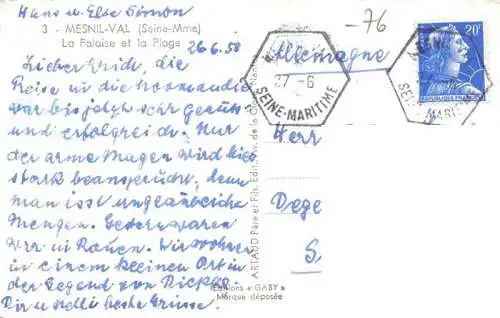 Hans u. Else Simon
3 - MESNIL-VAL (Seine-Mme)
La Falaise et la Plage
26.6.58
Lieber Erich, die
Reise in die Normandie
war bis jetzt sehr genuss
und erfolgreich. Nur
der arme Magen wird hier
stark beansprucht, denn
man isst ungeahnte
Mengen. Gestern waren
wir in Rouen. Wir wohnen
in einem kleinen Ort in
der Gegend von Dieppe.
Dir u. Nelli beste Grüsse.
-76
Allemagne
27-6
SEINE-MARITIME
20F
REPUBLIQUE FRANÇAISE
SEINE
MARIT
Herr
Dege
S.
ARTAUD Père et Fils, Édit.
Editions « GABY »
Marque déposée